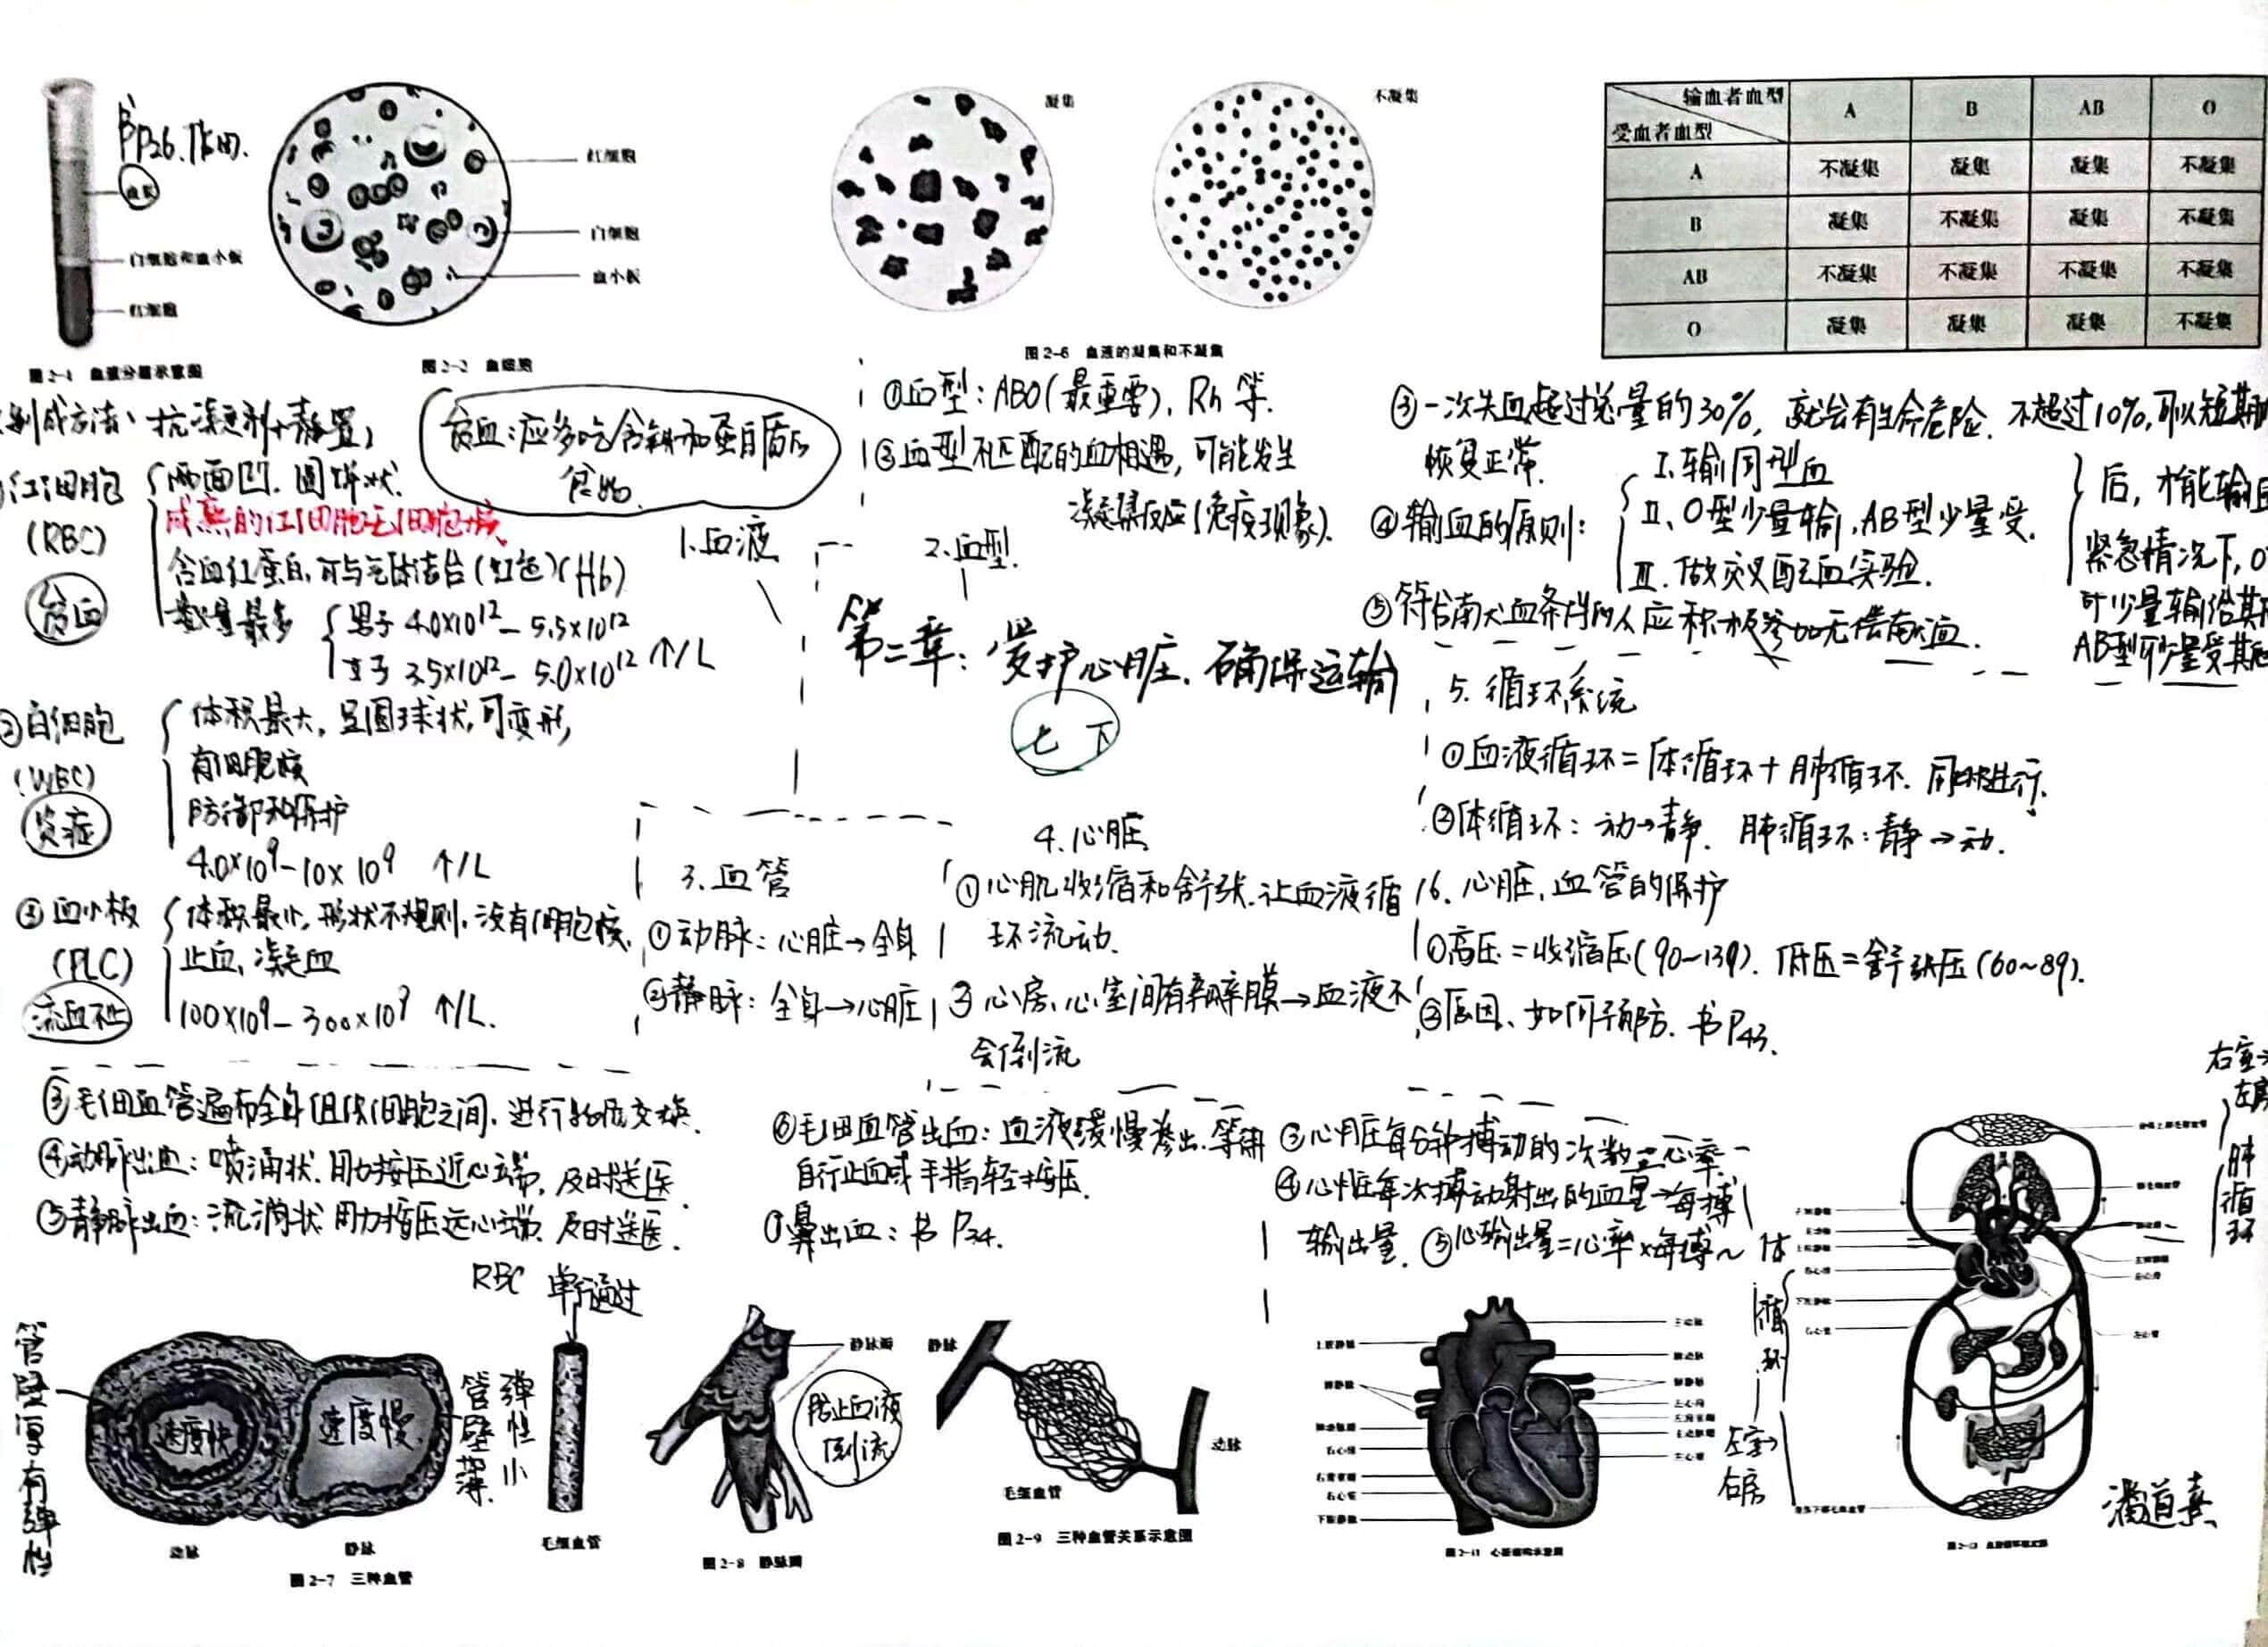 书P26.作用.
血浆
白细胞和血小板
红细胞
图2-1 血液分层示意图
红细胞
白细胞
血小板
图2-2 血细胞
凝集
不凝集
图2-6 血液的凝集和不凝集
输血者血型 A B AB O
受血者血型
A 不凝集 凝集 凝集 不凝集
B 凝集 不凝集 凝集 不凝集
AB 不凝集 不凝集 不凝集 不凝集
O 凝集 凝集 凝集 不凝集
制成方法: 抗凝剂+静置
贫血:应多吃含铁和蛋白质的
食物.
红细胞
(RBC)
贫血
两面凹.圆饼状.
成熟的红细胞无细胞核.
含血红蛋白,可与气体结合(红色)(Hb)
数量最多
男子 4.0×10¹²- 5.5×10¹²
女子 3.5×10¹²- 5.0×10¹² 个/L
②白细胞
(WBC)
炎症
体积最大,呈圆球状,可变形,
有细胞核
防御和保护
4.0×10⁹-10×10⁹ 个/L
③血小板
(PLC)
流血不止
体积最小,形状不规则.没有细胞核.
止血、凝血
100×10⁹- 300×10⁹ 个/L.
1.血液
2.血型.
①血型:ABO(最重要), Rh 等.
②血型不匹配的血相遇,可能发生
凝集反应(免疫现象).
③一次失血超过总量的30%, 就会有生命危险. 不超过10%,可以短期
恢复正常.
④输血的原则:
Ⅰ.输同型血
Ⅱ、O型少量输,AB型少量受.
Ⅲ.做交叉配血实验.
后,才能输
紧急情况下,O
可少量输给其
AB型可少量受其
⑤符合献血条件的人应积极参加无偿献血.
第二章:爱护心脏.确保运输
七 下
3.血管
①动脉:心脏→全身
②静脉:全身→心脏
③毛细血管遍布全身组织细胞之间,进行物质交换.
④动脉出血:喷涌状.用力按压近心端,及时送医.
⑤静脉出血:流淌状 用力指压远心端.及时送医.
⑥毛细血管出血:血液缓慢渗出.等待
自行止血或手指轻按压.
⑦鼻出血:书P34.
4.心脏
①心肌收缩和舒张.让血液循
环流动.
②心房,心室间有瓣膜→血液不
会倒流
③心脏每分钟搏动的次数→心率.
④心脏每次搏动射出的血量→每搏
输出量. ⑤心输出量=心率×每搏~
5.循环系统
①血液循环=体循环+肺循环. 同时进行.
②体循环:动→静. 肺循环:静→动.
6.心脏,血管的保护
①高压=收缩压(90~139). 低压=舒张压(60~89).
②原因、如何预防.书P43.
管壁厚有弹性
速度快
速度慢
管壁薄.
弹性小
动脉
静脉
图2-7 三种血管
RBC 单行通过
毛细血管
静脉瓣
防止血液
倒流
图2-8 静脉瓣
静脉
毛细血管
动脉
图2-9 三种血管关系示意图
上腔静脉
肺静脉
肺动脉瓣
右心房
右房室瓣
右心室
下腔静脉
主动脉
肺动脉
肺静脉
左心房
左房室瓣
主动脉瓣
左心室
图2-11 心脏结构示意图
体循环
左室→
右房
右室→
左房
肺循环
潘道熹